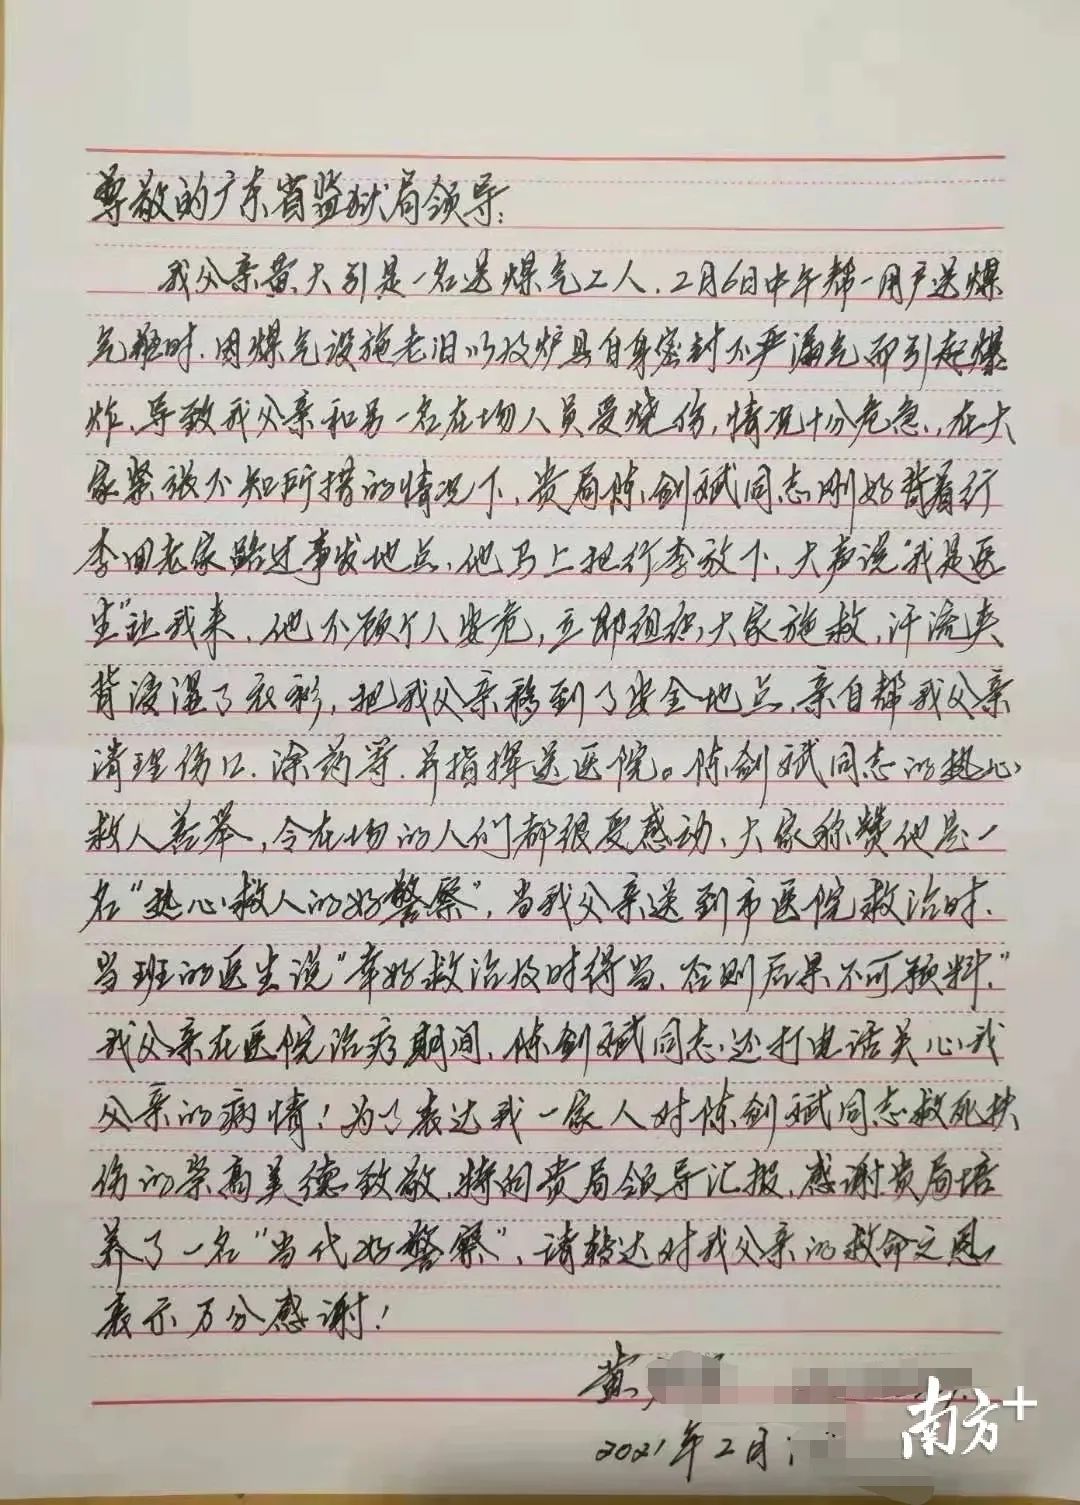 尊敬的广东省监狱局领导：
我父亲黄大引是一名送煤气工人，2月6日中午帮一用户送煤
气瓶时，因煤气设施老旧以及炉具自身密封不严漏气而引起爆
炸，导致我父亲和另一名在场人员受烧伤，情况十分危急，在大
家紧放不知所措的情况下，贵局陈剑斌同志刚好背着行
李回老家路过事发地点，他马上把行李放下，大声说“我是医
生”让我来，他不顾个人安危，立即组织大家施救，汗流夹
背浸湿了衣衫，把我父亲移到了安全地点，亲自帮我父亲
清理伤口、涂药等，并指挥送医院。陈剑斌同志的热心
救人善举，令在场的人们都很受感动，大家称赞他是一
名“热心救人的好警察”，当我父亲送到市医院救治时，
当班的医生说“幸好救治及时得当，否则后果不可预料”
我父亲在医院治疗期间，陈剑斌同志还打电话关心我
父亲的病情！为了表达我一家人对陈剑斌同志救死扶
伤的崇高美德致敬，特向贵局领导汇报，感谢贵局培
养了一名“当代好警察”，请转达对我父亲的救命之恩，
表示万分感谢！
黄
2021年2月
南方+